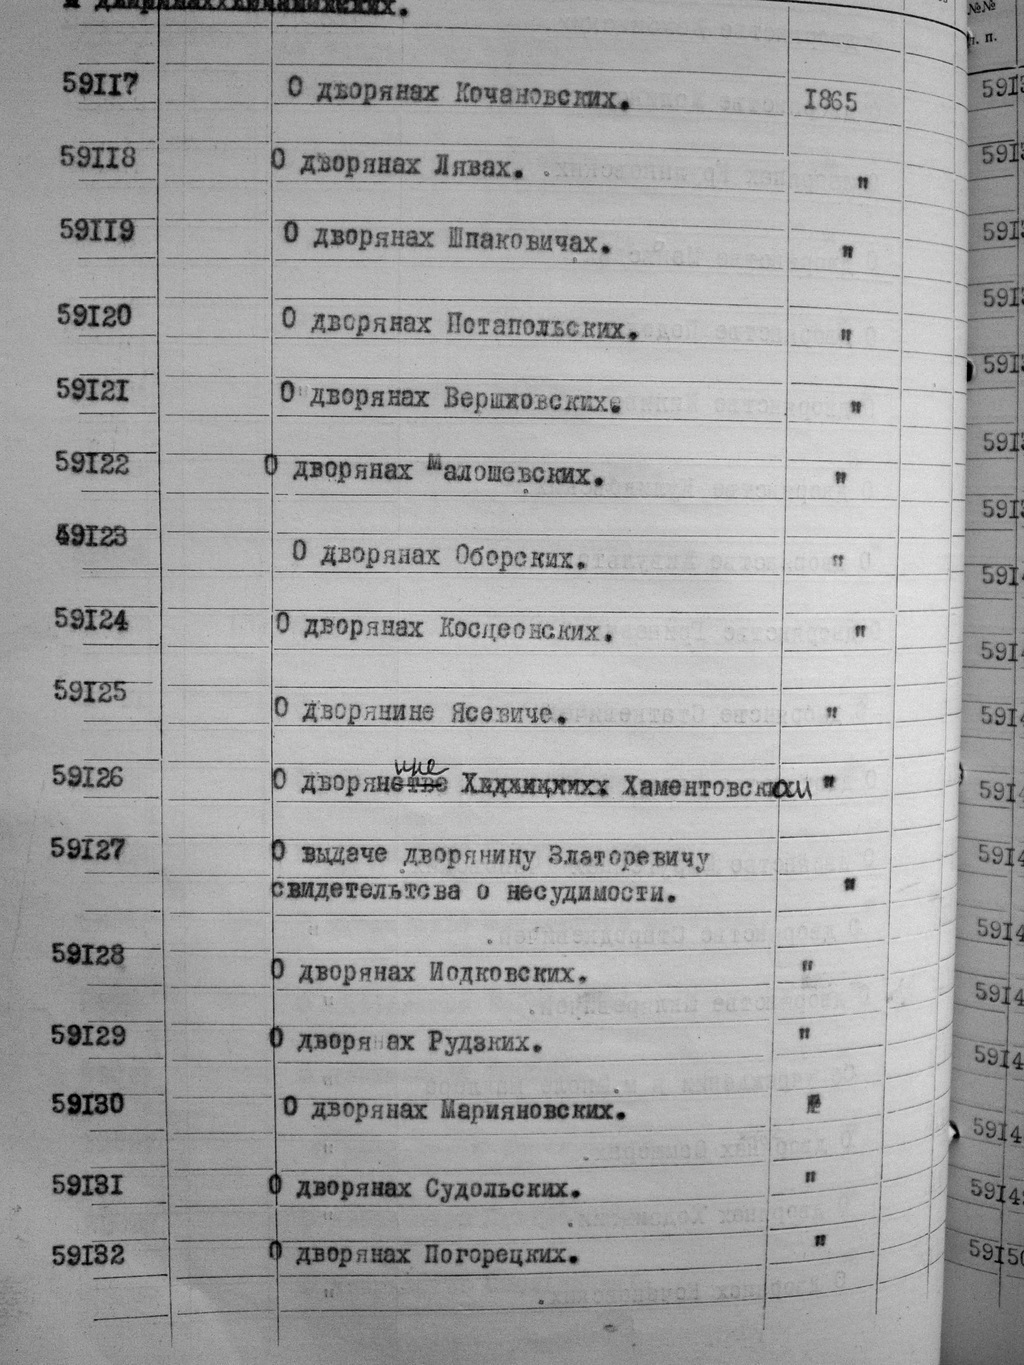 59II7 О дворянах Кочановских. I865
59II8 О дворянах Лявах. "
59II9 О дворянах Шпаковичах. "
59I20 О дворянах Потапольских. "
59I2I О дворянах Вершховских. "
59I22 О дворянах Малошевских. "
59I23 О дворянах Оборских. "
59I24 О дворянах Косцеонских. "
59I25 О дворянине Ясевиче. "
59I26 О дворянине Хаментовском "
59I27 О выдаче дворянину Златоревичу
свидетельтсва о несудимости. "
59I28 О дворянах Иодковских. "
59I29 О дворянах Рудзких. "
59I30 О дворянах Марияновских. "
59I3I О дворянах Судольских. "
59I32 О дворянах Погорецких. "
№№
п. п.